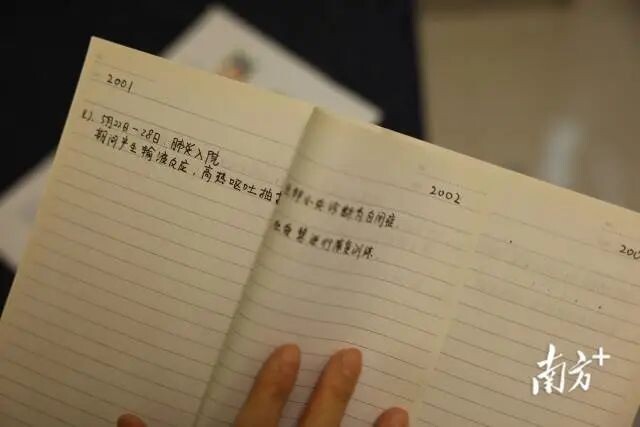 2001
5月22日-28日,肺炎入院
期间产生输液反应,高热呕吐抽
2002
诊断为自闭症.
进行康复训练
200
南方+